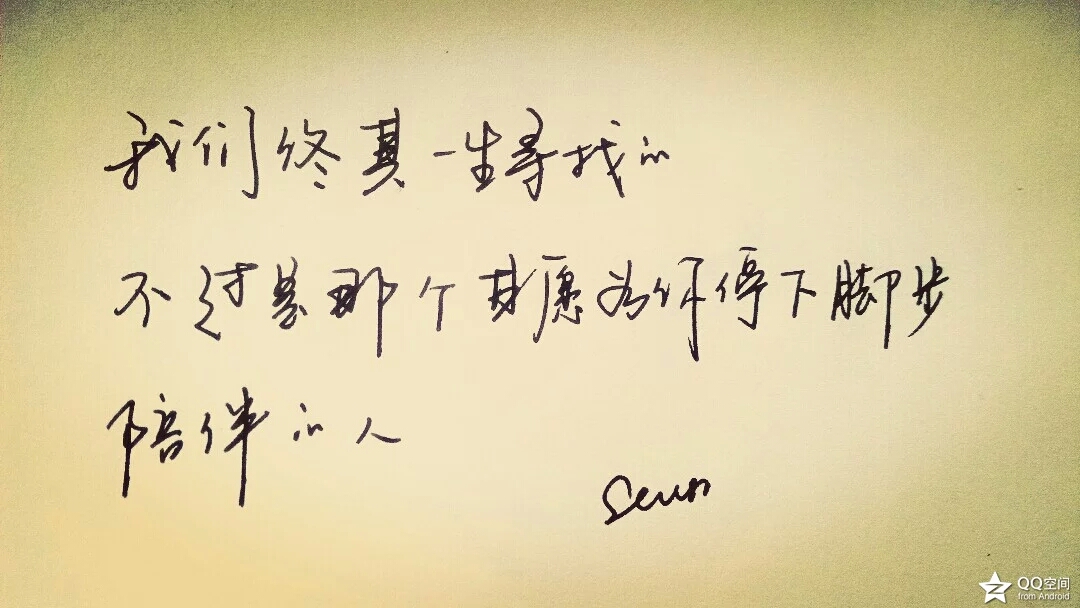 我们终其一生寻找的
不过是那个甘愿为你停下脚步
陪伴的人
QQ空间
from Android